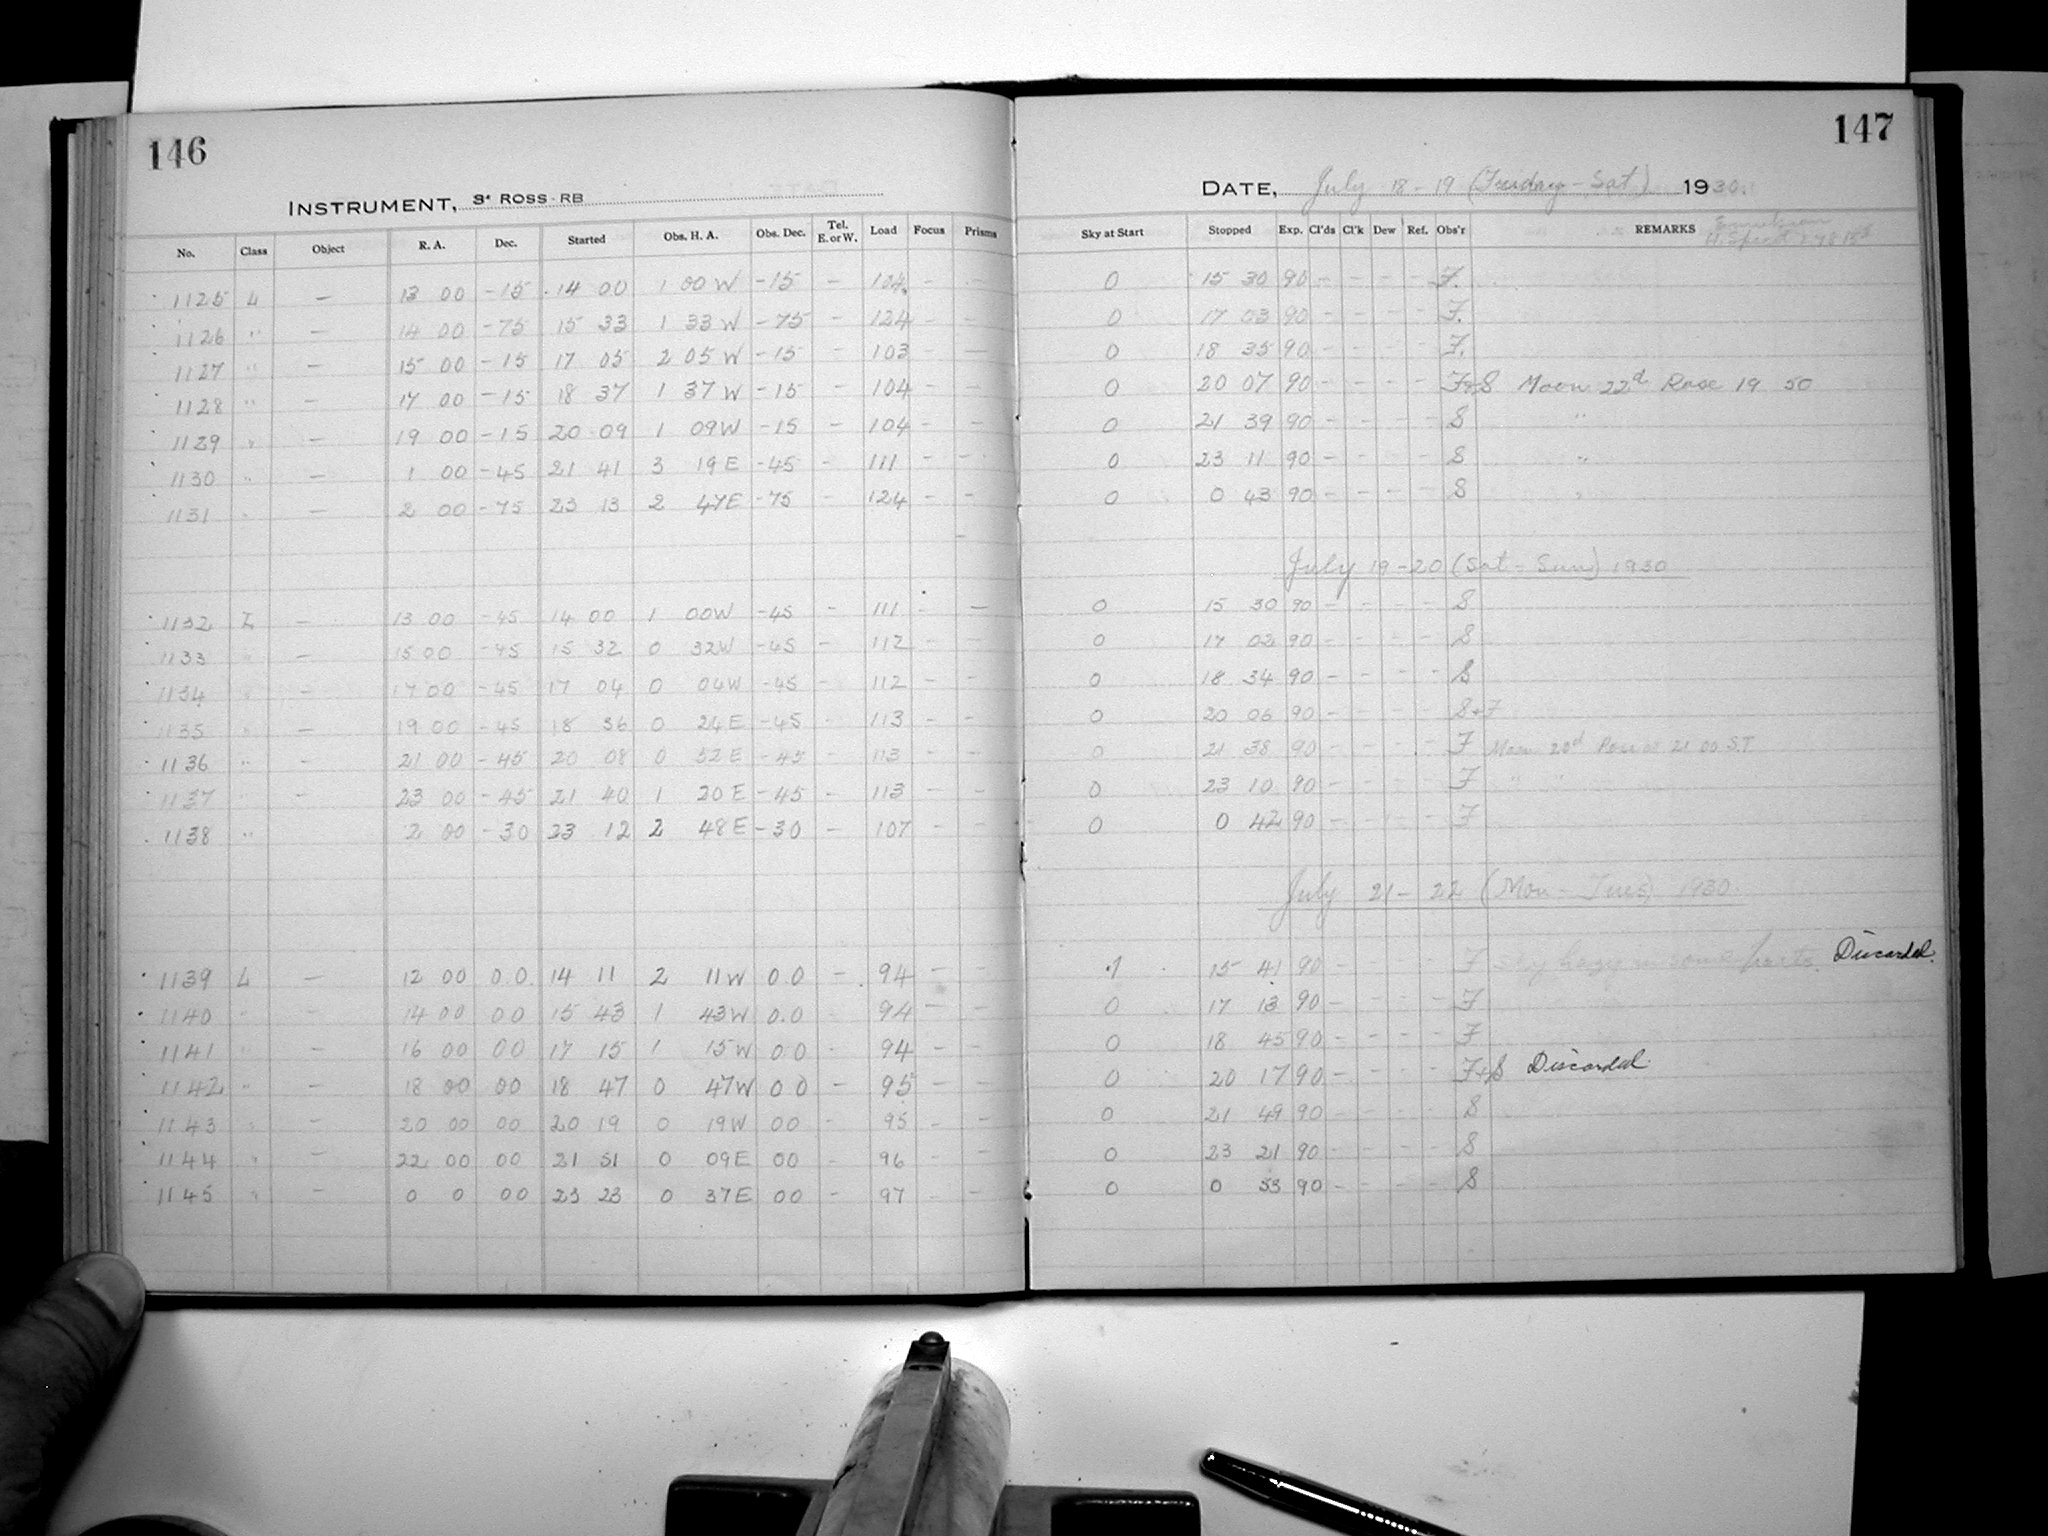 146
INSTRUMENT, 3" ROSS-RB
No. Class Object R. A. Dec. Started Obs. H. A. Obs. Dec. Tel. E. or W. Load Focus Prisms
1125 L — 13 00 -15 14 00 1 00 W -15 - 104 - -
1126 " — 14 00 -75 15 33 1 33 W -75 - 124 - -
1127 " — 15 00 -15 17 05 2 05 W -15 - 103 - —
1128 " — 17 00 -15 18 37 1 37 W -15 - 104 - -
1129 " — 19 00 -15 20 09 1 09 W -15 - 104 - -
1130 " — 1 00 -45 21 41 3 19 E -45 - 111 - -
1131 " — 2 00 -75 23 13 2 47 E -75 - 124 - -
1132 L — 13 00 -45 14 00 1 00 W -45 - 111 - —
1133 " — 15 00 -45 15 32 0 32 W -45 - 112 - -
1134 " — 17 00 -45 17 04 0 04 W -45 - 112 - -
1135 " — 19 00 -45 18 36 0 24 E -45 - 113 - -
1136 " — 21 00 -45 20 08 0 52 E -45 - 113 - -
1137 " — 23 00 -45 21 40 1 20 E -45 - 113 - -
1138 " 2 00 -30 23 12 2 48 E -30 - 107 - -
1139 L — 12 00 0.0 14 11 2 11 W 0.0 - 94 - -
1140 " — 14 00 00 15 43 1 43 W 0.0 94 - -
1141 " — 16 00 00 17 15 1 15 W 00 - 94 - -
1142 " — 18 00 00 18 47 0 47 W 00 - 95 - -
1143 " — 20 00 00 20 19 0 19 W 00 - 95 - -
1144 " — 22 00 00 21 51 0 09 E 00 - 96 - -
1145 " — 0 0 00 23 23 0 37 E 00 - 97 - -
147
DATE, July 18-19 (Friday-Sat) 1930.
Sky at Start Stopped Exp. Cl'ds Cl'k Dew Ref. Obs'r REMARKS
0 15 30 90 - - - - F.
0 17 03 90 - - - - F.
0 18 35 90 - - - - F.
0 20 07 90 - - - - F+S Moon 22d Rose 19 50
0 21 39 90 - - - - S "
0 23 11 90 - - - - S "
0 0 43 90 - - - - S "
July 19-20 (Sat-Sun) 1930
0 15 30 90 - - - - S
0 17 02 90 - - - - S
0 18 34 90 - - - - S
0 20 06 90 - - - - S+F
0 21 38 90 - - - - F Moon 20d 21 00 S.T.
0 23 10 90 - - - - F " "
0 0 42 90 - - - - F
July 21-22 (Mon-Tues) 1930
.1 15 41 90 - - - - F Sky hazy in some parts. Discarded.
0 17 13 90 - - - - F
0 18 45 90 - - - - F
0 20 17 90 - - - - F+S Discarded
0 21 49 90 - - - - S
0 23 21 90 - - - - S
0 0 53 90 - - - - S